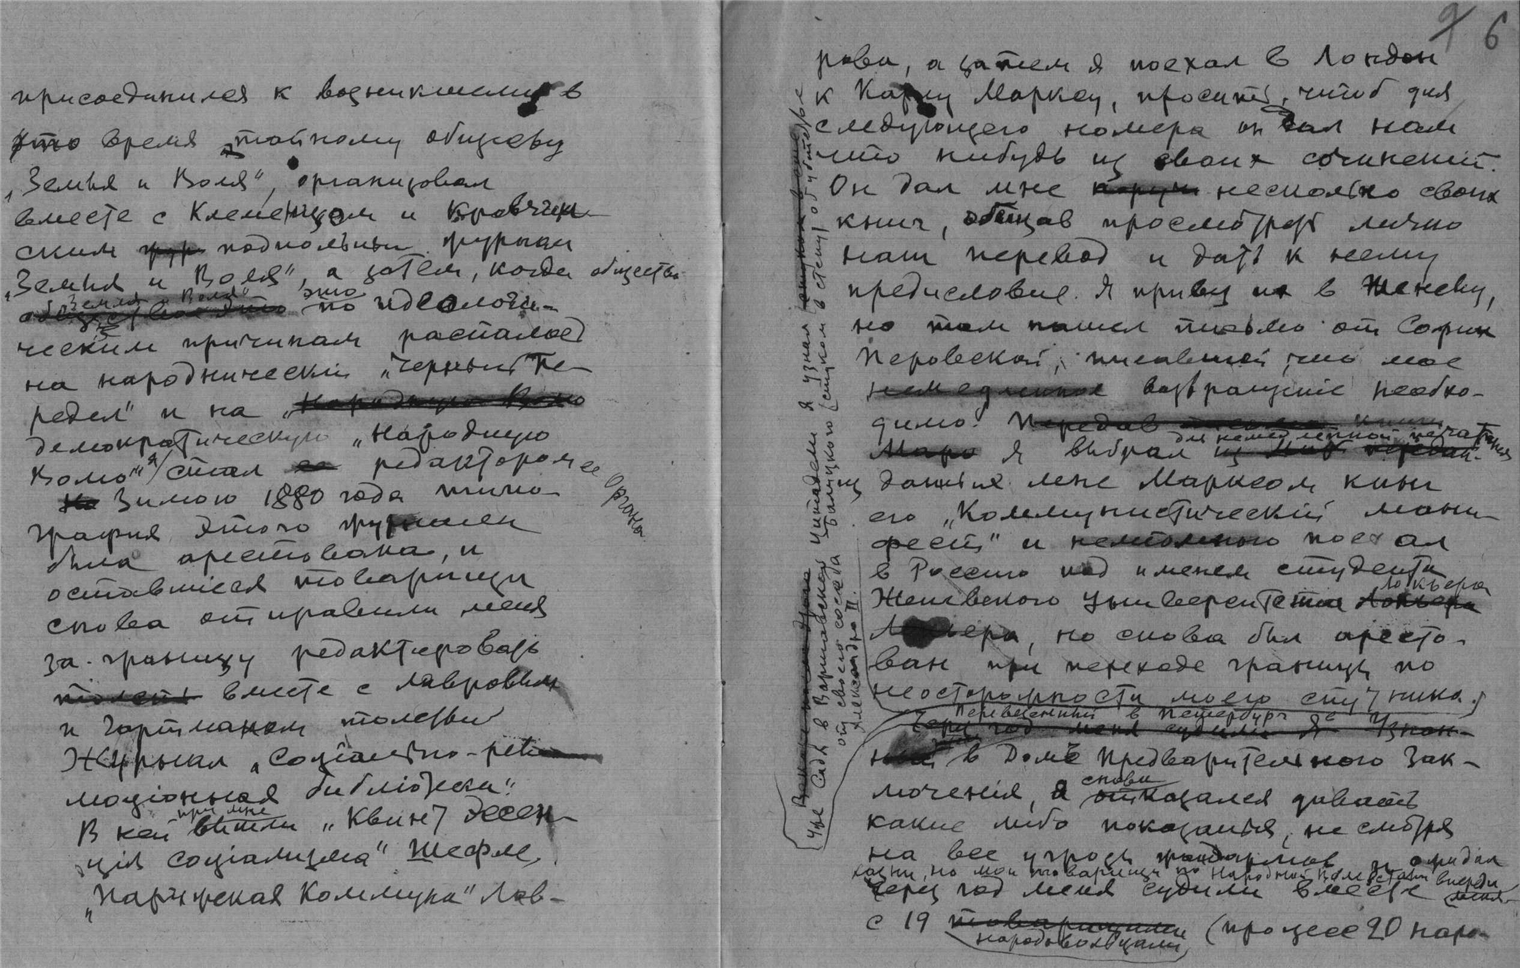 присоединился к возникшему в
это время тайному обществу
„Земля и Воля", организовал
вместе с Клеменцом и Кравчин-
ским подпольный журнал
„Земля и Воля", а затем, когда общество
„Земля и Воля" это
по идеологи-
ческим причинам распалось
на народнический „Черный Пе-
редел" и на „Народную Волю
демократическую „Народную
Волю" я стал редактором ее органа
Зимою 1880 года типо-
графия этого журнала
была арестована, и
оставшиеся товарищи
снова отправили меня
за-границу редактировать
вместе с Лавровым
и Гартманом толстый
Журнал „Социально-рево-
люціонная библіотека".
при мне
В ней вышли „Квинт эссен-
ція соціализма" Шефле,
„Парижская Коммуна" Лав-
6
рова, а затем я поехал в Лондон
к Карлу Марксу, просить, чтоб для
следующего номера он дал нам
что нибудь из своих сочинений.
Он дал мне несколько своих
книг, обещав просмотреть лично
наш перевод и дать к нему
предисловие. Я привез их в Женеву,
но там нашел письмо от Софии
Перовской, писавшей, что мое
немедленное возвращение необхо-
димо. Передав
для немедленной печатания
Я выбрал из
данных мне Марксом книг
его „Коммунистический мани-
фест" и поехал
в Россию под именем студента
Женевского университета Локьера
Локьера, но снова был аресто-
ван при переходе границы по
неосторожности моего спутника.
Перевезенный в Петербург
Через год меня судили
в Домѣ Предварительного Зак-
снова
люченія, я отказался давать
какие либо показанія, не смотря
на все угрозы жандармов и ожидал
казни, но мои товарищи по Народной Воле
Через год меня судили вместе
с 19 товарищами (процесс 20 наро-
народовольцами,
Сидя в Варшавской Цитадели я узнал стуком в стену
от своего соседа
Александра II.